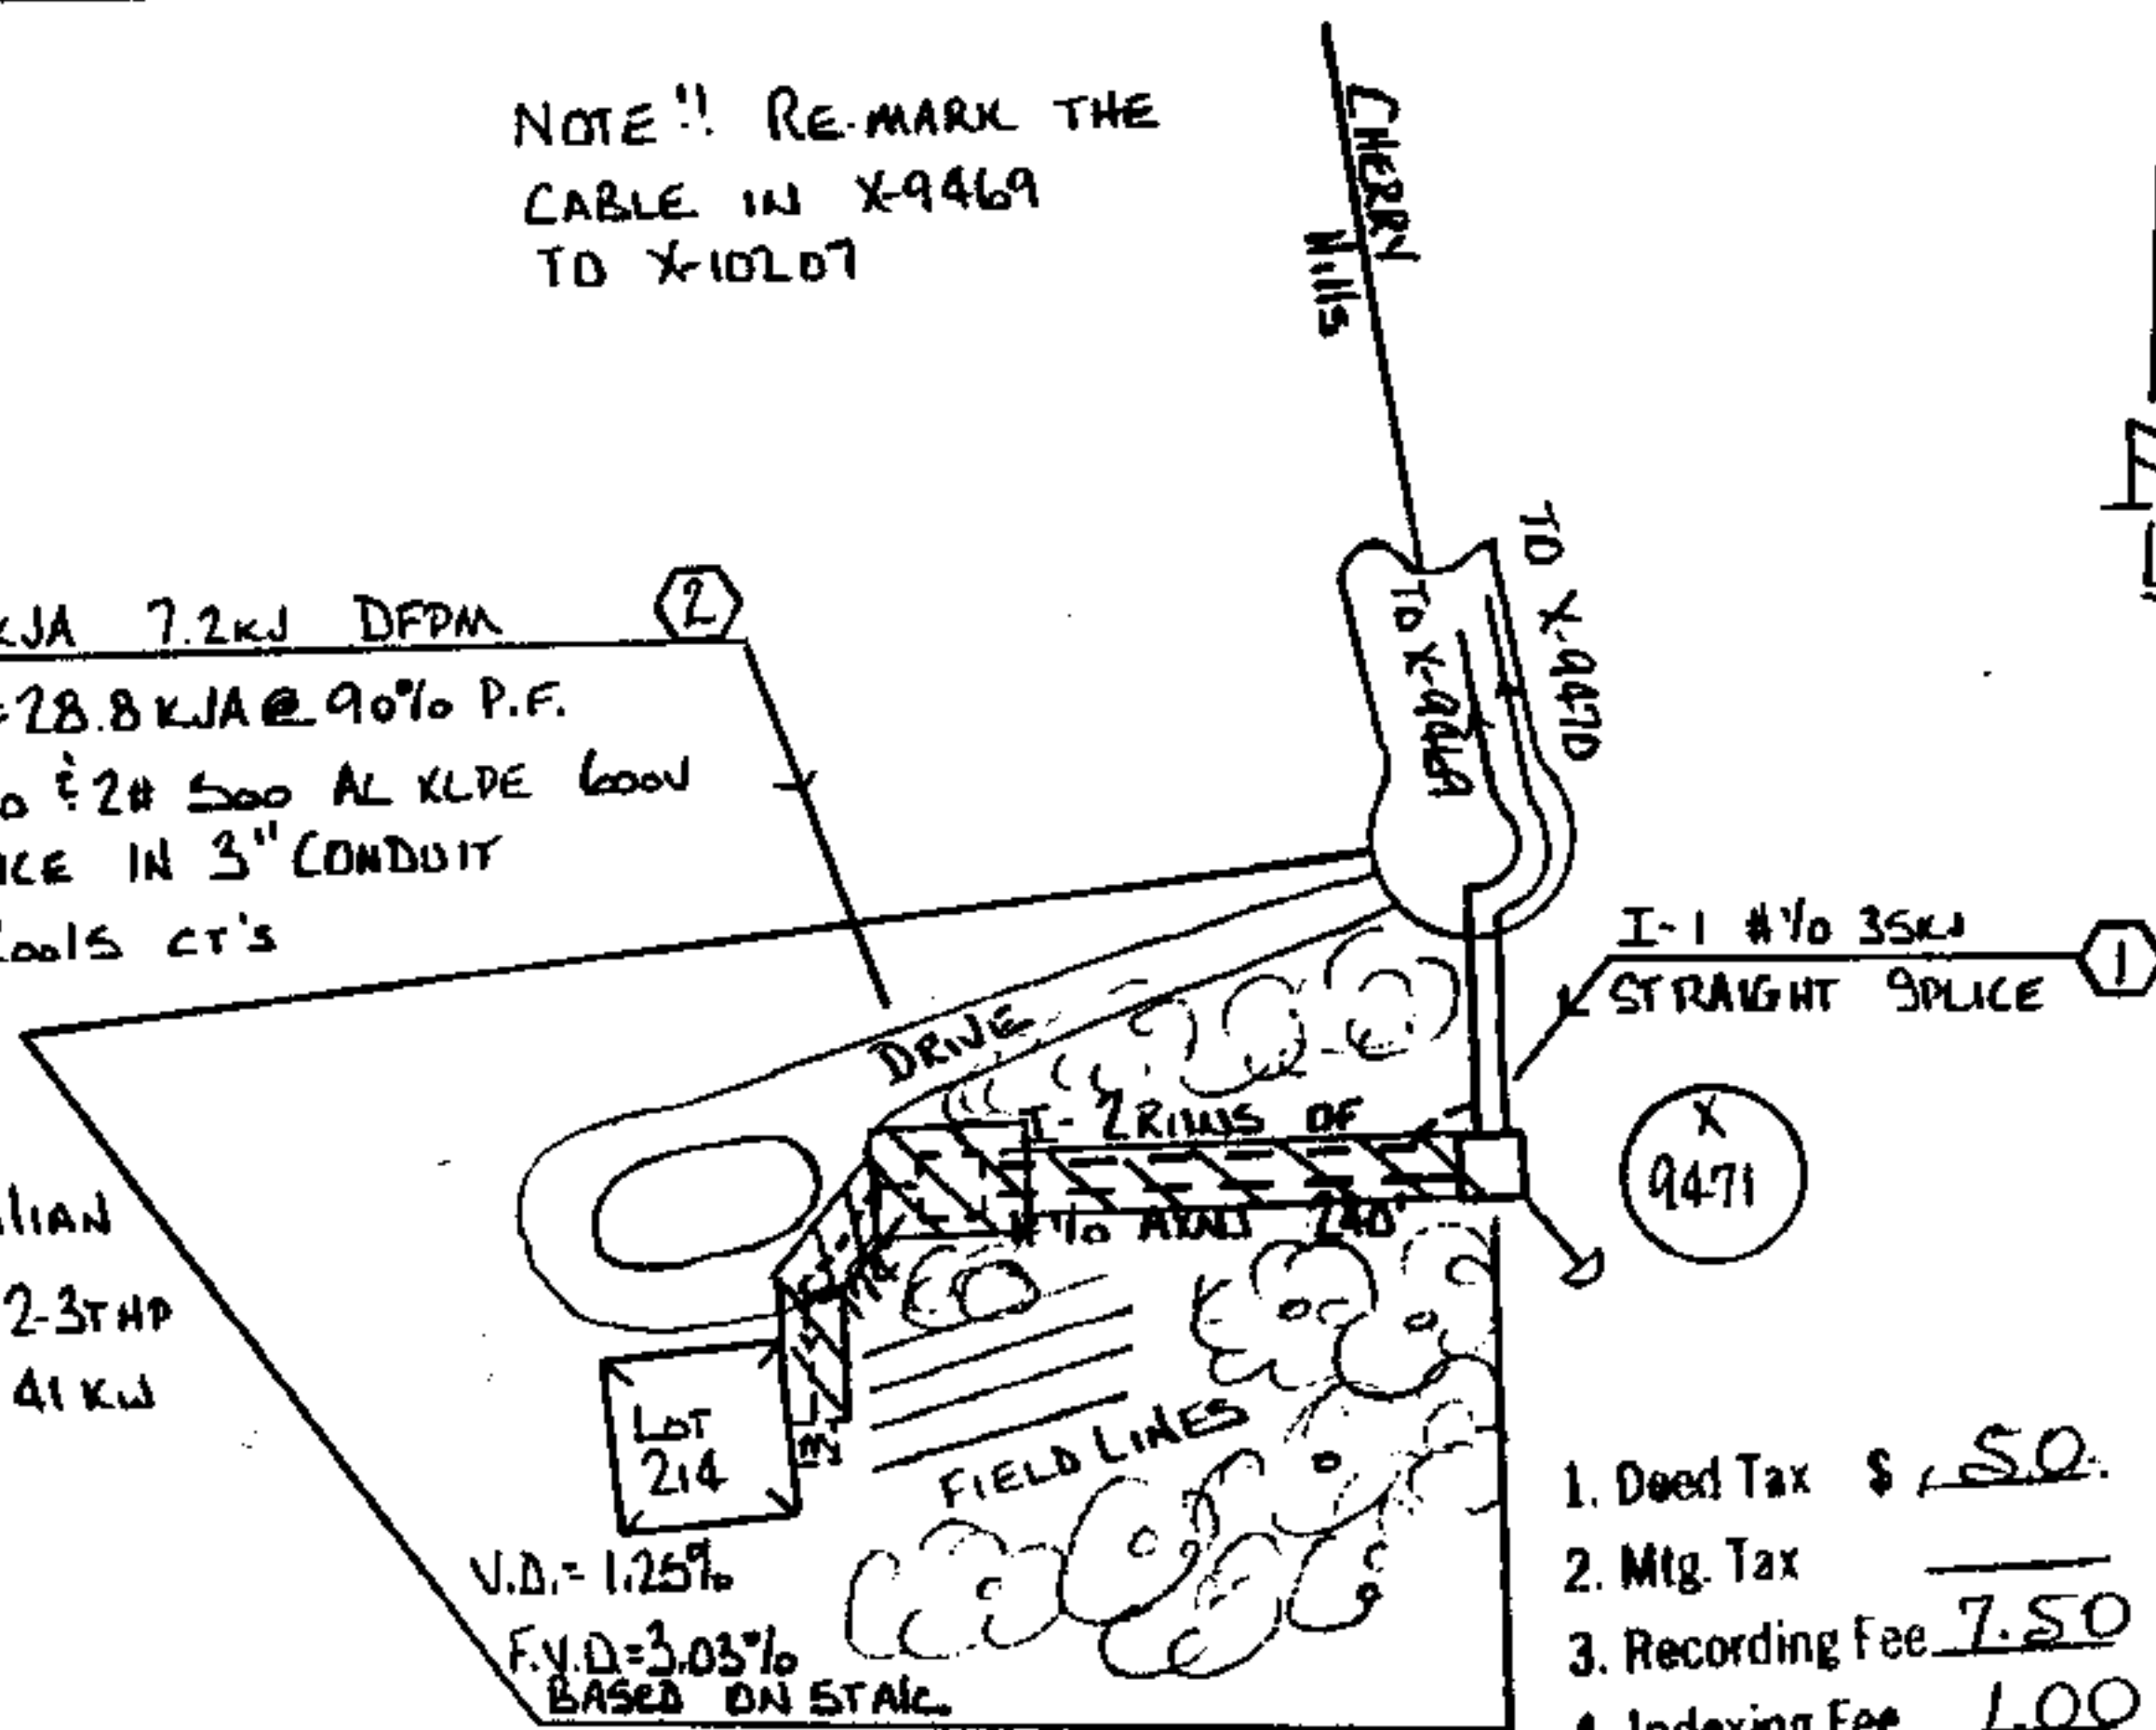 NOTE!! RE-MARK THE
CABLE IN X-9469
TO X-10207
CHERRY
Hills
TO X-9470
KVA 7.2KV DFPM
2
=28.8 KVA @ 90% P.F.
2# 500 AL XLPE 600V
IN 3" CONDUIT
CT'S
I-1 #1/0 35KV
1
STRAIGHT SPLICE
DRIVE
I-2 RUNS OF
X
9471
#1/0 240'
2-3THP
41 KW
LOT
214
FIELD LINES
V.D.= 1.25%
F.V.D=3.03%
BASED ON
1. Deed Tax $ .50
2. Mtg. Tax
3. Recording Fee 7.50
4. Indexing Fee 1.00